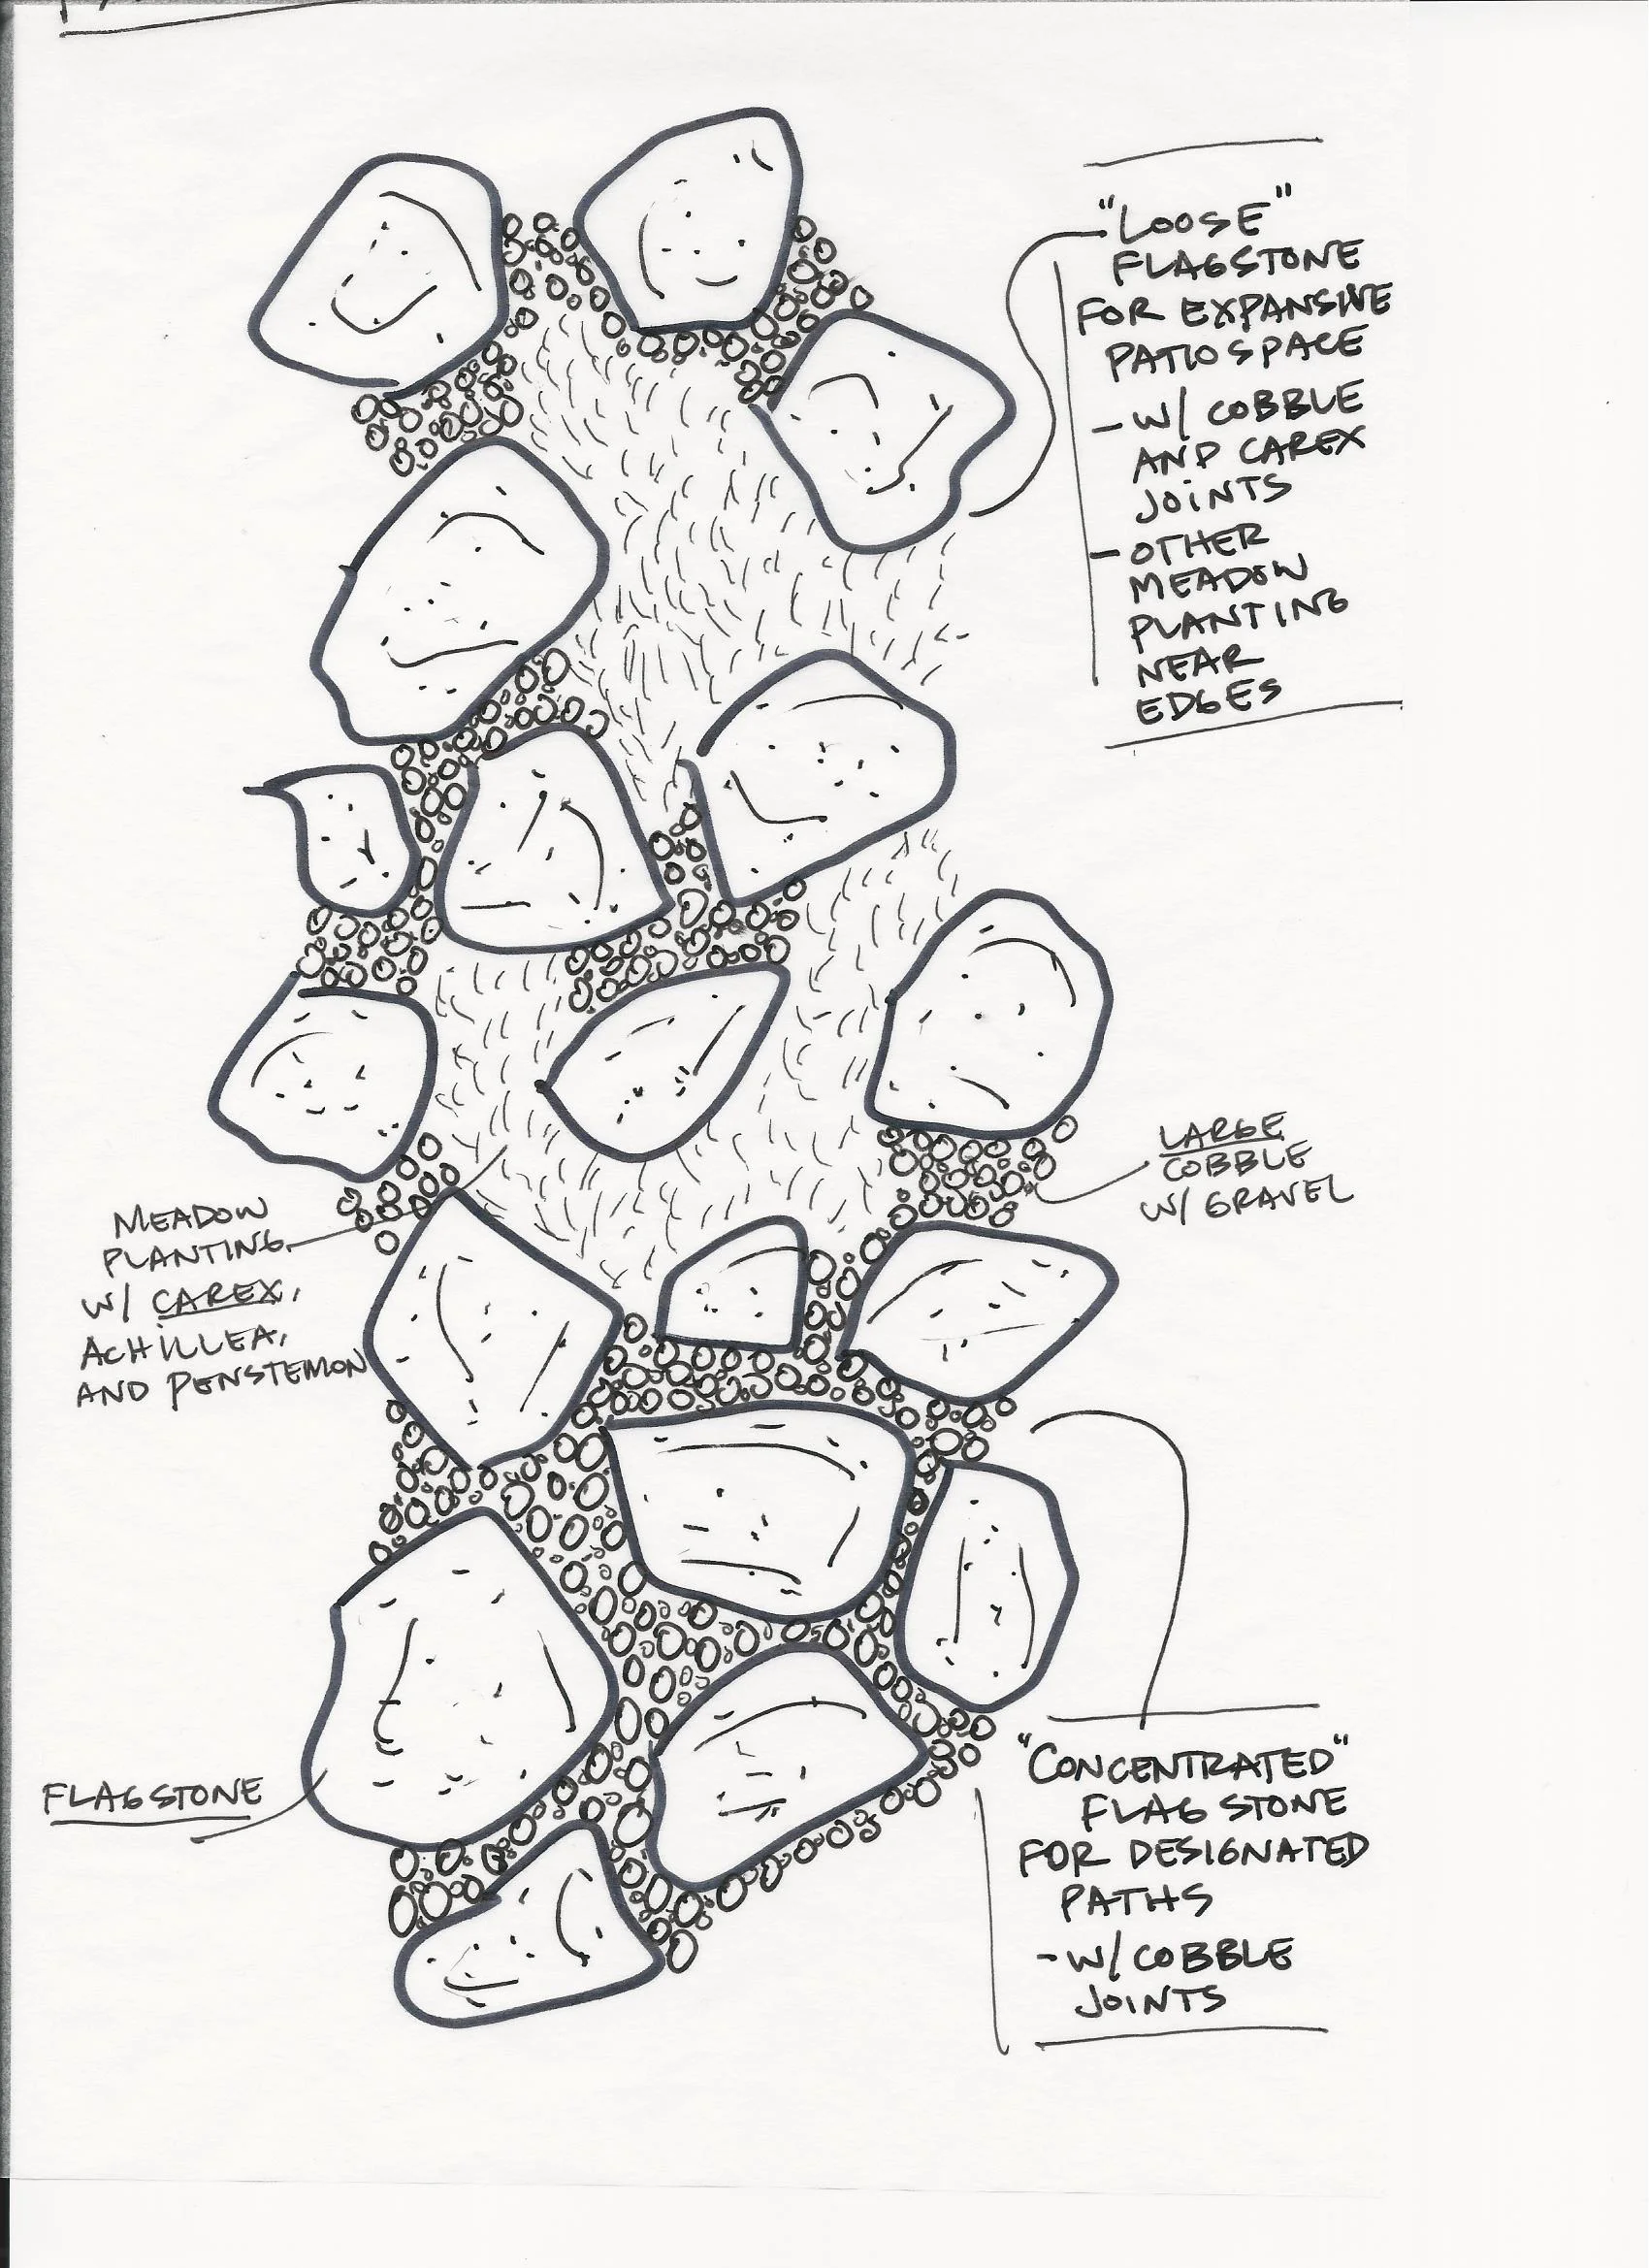 "LOOSE"
FLAGSTONE
FOR EXPANSIVE
PATIO SPACE
- W/ COBBLE
AND CAREX
JOINTS
- OTHER
MEADOW
PLANTING
NEAR
EDGES
LARGE
COBBLE
W/ GRAVEL
MEADOW
PLANTING
W/ CAREX,
ACHILLEA,
AND PENSTEMON
FLAGSTONE
"CONCENTRATED"
FLAG STONE
FOR DESIGNATED
PATHS
- W/ COBBLE
JOINTS